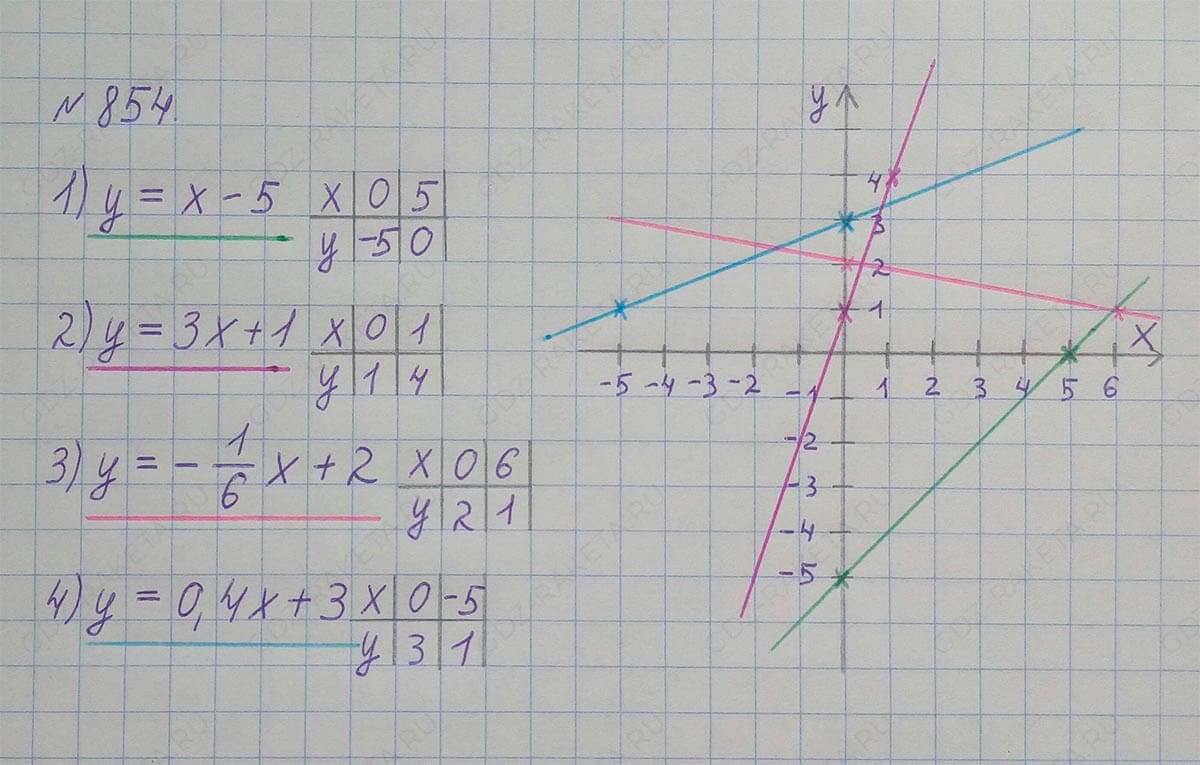 № 854.
1) y = x - 5 x 0 5
y -5 0
2) y = 3x + 1 x 0 1
y 1 4
3) y = - 1/6 x + 2 x 0 6
y 2 1
4) y = 0,4x + 3 x 0 -5
y 3 1
y
4
3
2
1
x
-5 -4 -3 -2 1 2 3 4 5 6
-1
-2
-3
-4
-5
GDZ-RAKETA.RU